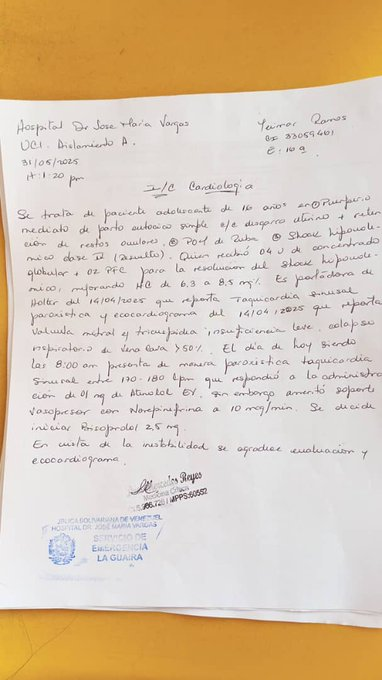 Hospital Dr Jose Maria Vargas
UCI. Aislamiento A.
31/05/2025
H: 1:20 pm
Yeimar Ramos
CI 33059461
E: 16 a
I/C Cardiologia
Se trata de paciente adolescente de 16 años en ① Puerperio
mediato de parto autocico simple c/c desgarro uterino + reten
ción de restos ovulares. ② PO41 de ③ Shock hipovole-
mico clase IV (resuelto). Quien recibió 04 U de concentrado
globular + 02 PFC para la resolución del shock hipovole-
mico, mejorando HC de 6.3 a 8,5 mg%. Es portadora de
Holter del 14/04/2025 que reporta Taquicardia sinusal
paroxistica y ecocardiograma del 14/04/2025 que reporta
Valvula mitral y tricuspidia insuficiencia leve. colapso
inspiratorio de Vena Cava >50%. El día de hoy siendo
las 8:00 am presenta de manera paroxistica taquicardia
sinusal entre 170-180 lpm que respondió a la administra
ción de 01 mg de Atenolol EV. sin embargo ameritó soporte
vasopresor con Norepinefrina a 10 mcg/min. Se decide
iniciar Bisoprolol 2,5 mg.
En vista de la inestibilidad se agradece evaluación y
ecocardiograma.
Mercedes Reyes
MPPS:60552
BLICA BOLIVARIANA DE VENEZUEL
HOSPITAL DR. JOSÉ MARIA VARGAS
SERVICIO DE
EMERGENCIA
LA GUAIRA